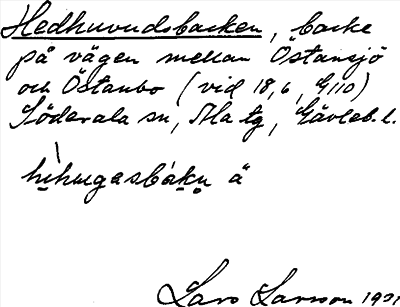 Hedhuvudsbacken, backe
på vägen mellan Östansjö
och Östanbo (vid 18,6, G110)
Söderala sn, Ala tg, Gävleb. l.
Lars Larsson 1921